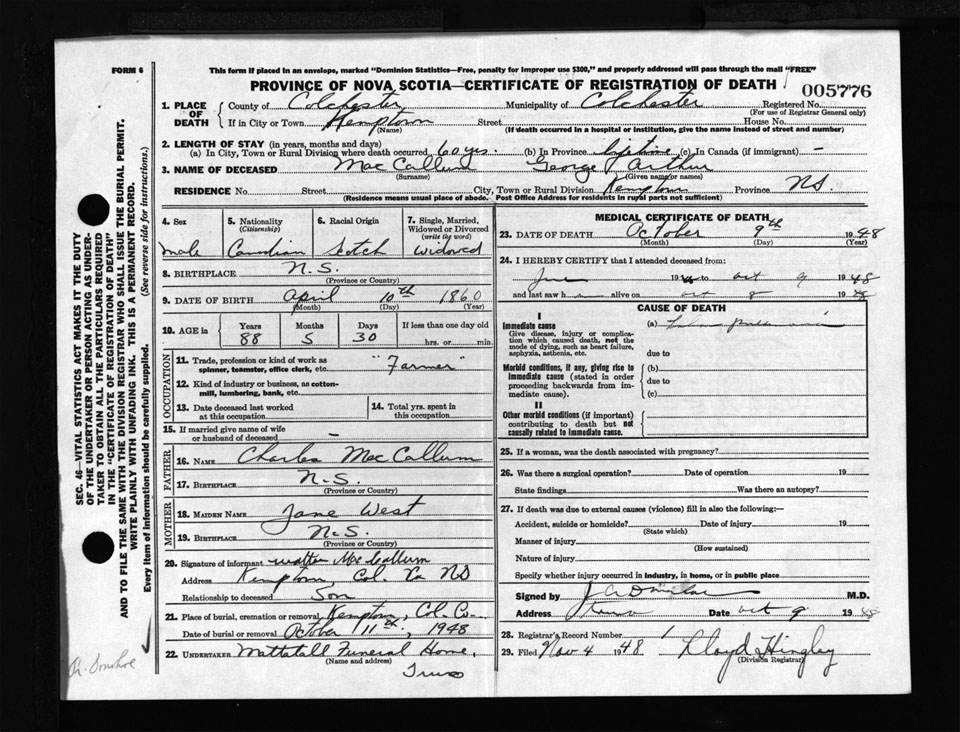 FORM 6
This form if placed in an envelope, marked "Dominion Statistics—Free, penalty for improper use $300," and properly addressed will pass through the mail "FREE"
PROVINCE OF NOVA SCOTIA—CERTIFICATE OF REGISTRATION OF DEATH
005776
1. PLACE OF DEATH
County of Colchester Municipality of Colchester Registered No.
(For use of Registrar General only)
If in City or Town Kemptown Street House No.
(Name) (If death occurred in a hospital or institution, give the name instead of street and number)
2. LENGTH OF STAY (in years, months and days)
(a) In City, Town or Rural Division where death occurred 60 yrs. (b) In Province lifetime (c) In Canada (if immigrant) -
3. NAME OF DECEASED MacCallum George Arthur
(Surname) (Given name or names)
RESIDENCE No. Street City, Town or Rural Division Kemptown Province NS
(Residence means usual place of abode. Post Office Address for residents in rural parts not sufficient)
4. Sex
male
5. Nationality (Citizenship)
Canadian
6. Racial Origin
Scotch
7. Single, Married, Widowed or Divorced (write the word)
Widowed
8. BIRTHPLACE N.S.
(Province or Country)
9. DATE OF BIRTH April 10th 1860
(Month) (Day) (Year)
10. AGE in
Years Months Days If less than one day old
88 5 30 hrs. or min.
OCCUPATION
11. Trade, profession or kind of work as spinner, teamster, office clerk, etc. "Farmer"
12. Kind of industry or business, as cotton-mill, lumbering, bank, etc.
13. Date deceased last worked at this occupation
14. Total yrs. spent in this occupation
15. If married give name of wife or husband of deceased -
FATHER
16. NAME Charles MacCallum
17. BIRTHPLACE N.S.
(Province or Country)
MOTHER
18. MAIDEN NAME Jane West
19. BIRTHPLACE N.S.
(Province or Country)
20. Signature of informant Walter MacCallum
Address Kemptown, Col. Co NS
Relationship to deceased Son
21. Place of burial, cremation or removal Kemptown, Col. Co.
Date of burial or removal October 11th, 1948
22. UNDERTAKER Mattatall Funeral Home,
(Name and address)
Truro
MEDICAL CERTIFICATE OF DEATH
23. DATE OF DEATH October 9th 1948
(Month) (Day) (Year)
24. I HEREBY CERTIFY that I attended deceased from:
19 to Oct 9 1948
and last saw h alive on Oct 8 1948
CAUSE OF DEATH
I
Immediate cause
Give disease, injury or complication which caused death, not the mode of dying, such as heart failure, asphyxia, asthenia, etc.
(a)
due to
Morbid conditions, if any, giving rise to immediate cause (stated in order proceeding backwards from immediate cause).
(b)
due to
(c)
II
Other morbid conditions (if important) contributing to death but not causally related to immediate cause.
25. If a woman, was the death associated with pregnancy?
26. Was there a surgical operation? Date of operation 19
State findings Was there an autopsy?
27. If death was due to external causes (violence) fill in also the following:—
Accident, suicide or homicide? Date of injury 19
(State which)
Manner of injury
(How sustained)
Nature of injury
Specify whether injury occurred in industry, in home, or in public place
Signed by M.D.
Address Truro Date Oct 9 1948
28. Registrar's Record Number 1
29. Filed Nov 4 1948 Lloyd Hingley
(Division Registrar)
SEC. 46—VITAL STATISTICS ACT MAKES IT THE DUTY
OF THE UNDERTAKER OR PERSON ACTING AS UNDER-
TAKER TO OBTAIN ALL THE PARTICULARS REQUIRED
IN THE "CERTIFICATE OF REGISTRATION OF DEATH"
AND TO FILE THE SAME WITH THE DIVISION REGISTRAR WHO SHALL ISSUE THE BURIAL PERMIT.
WRITE PLAINLY WITH UNFADING INK. THIS IS A PERMANENT RECORD.
Every item of information should be carefully supplied. (See reverse side for instructions.)
Donohoe